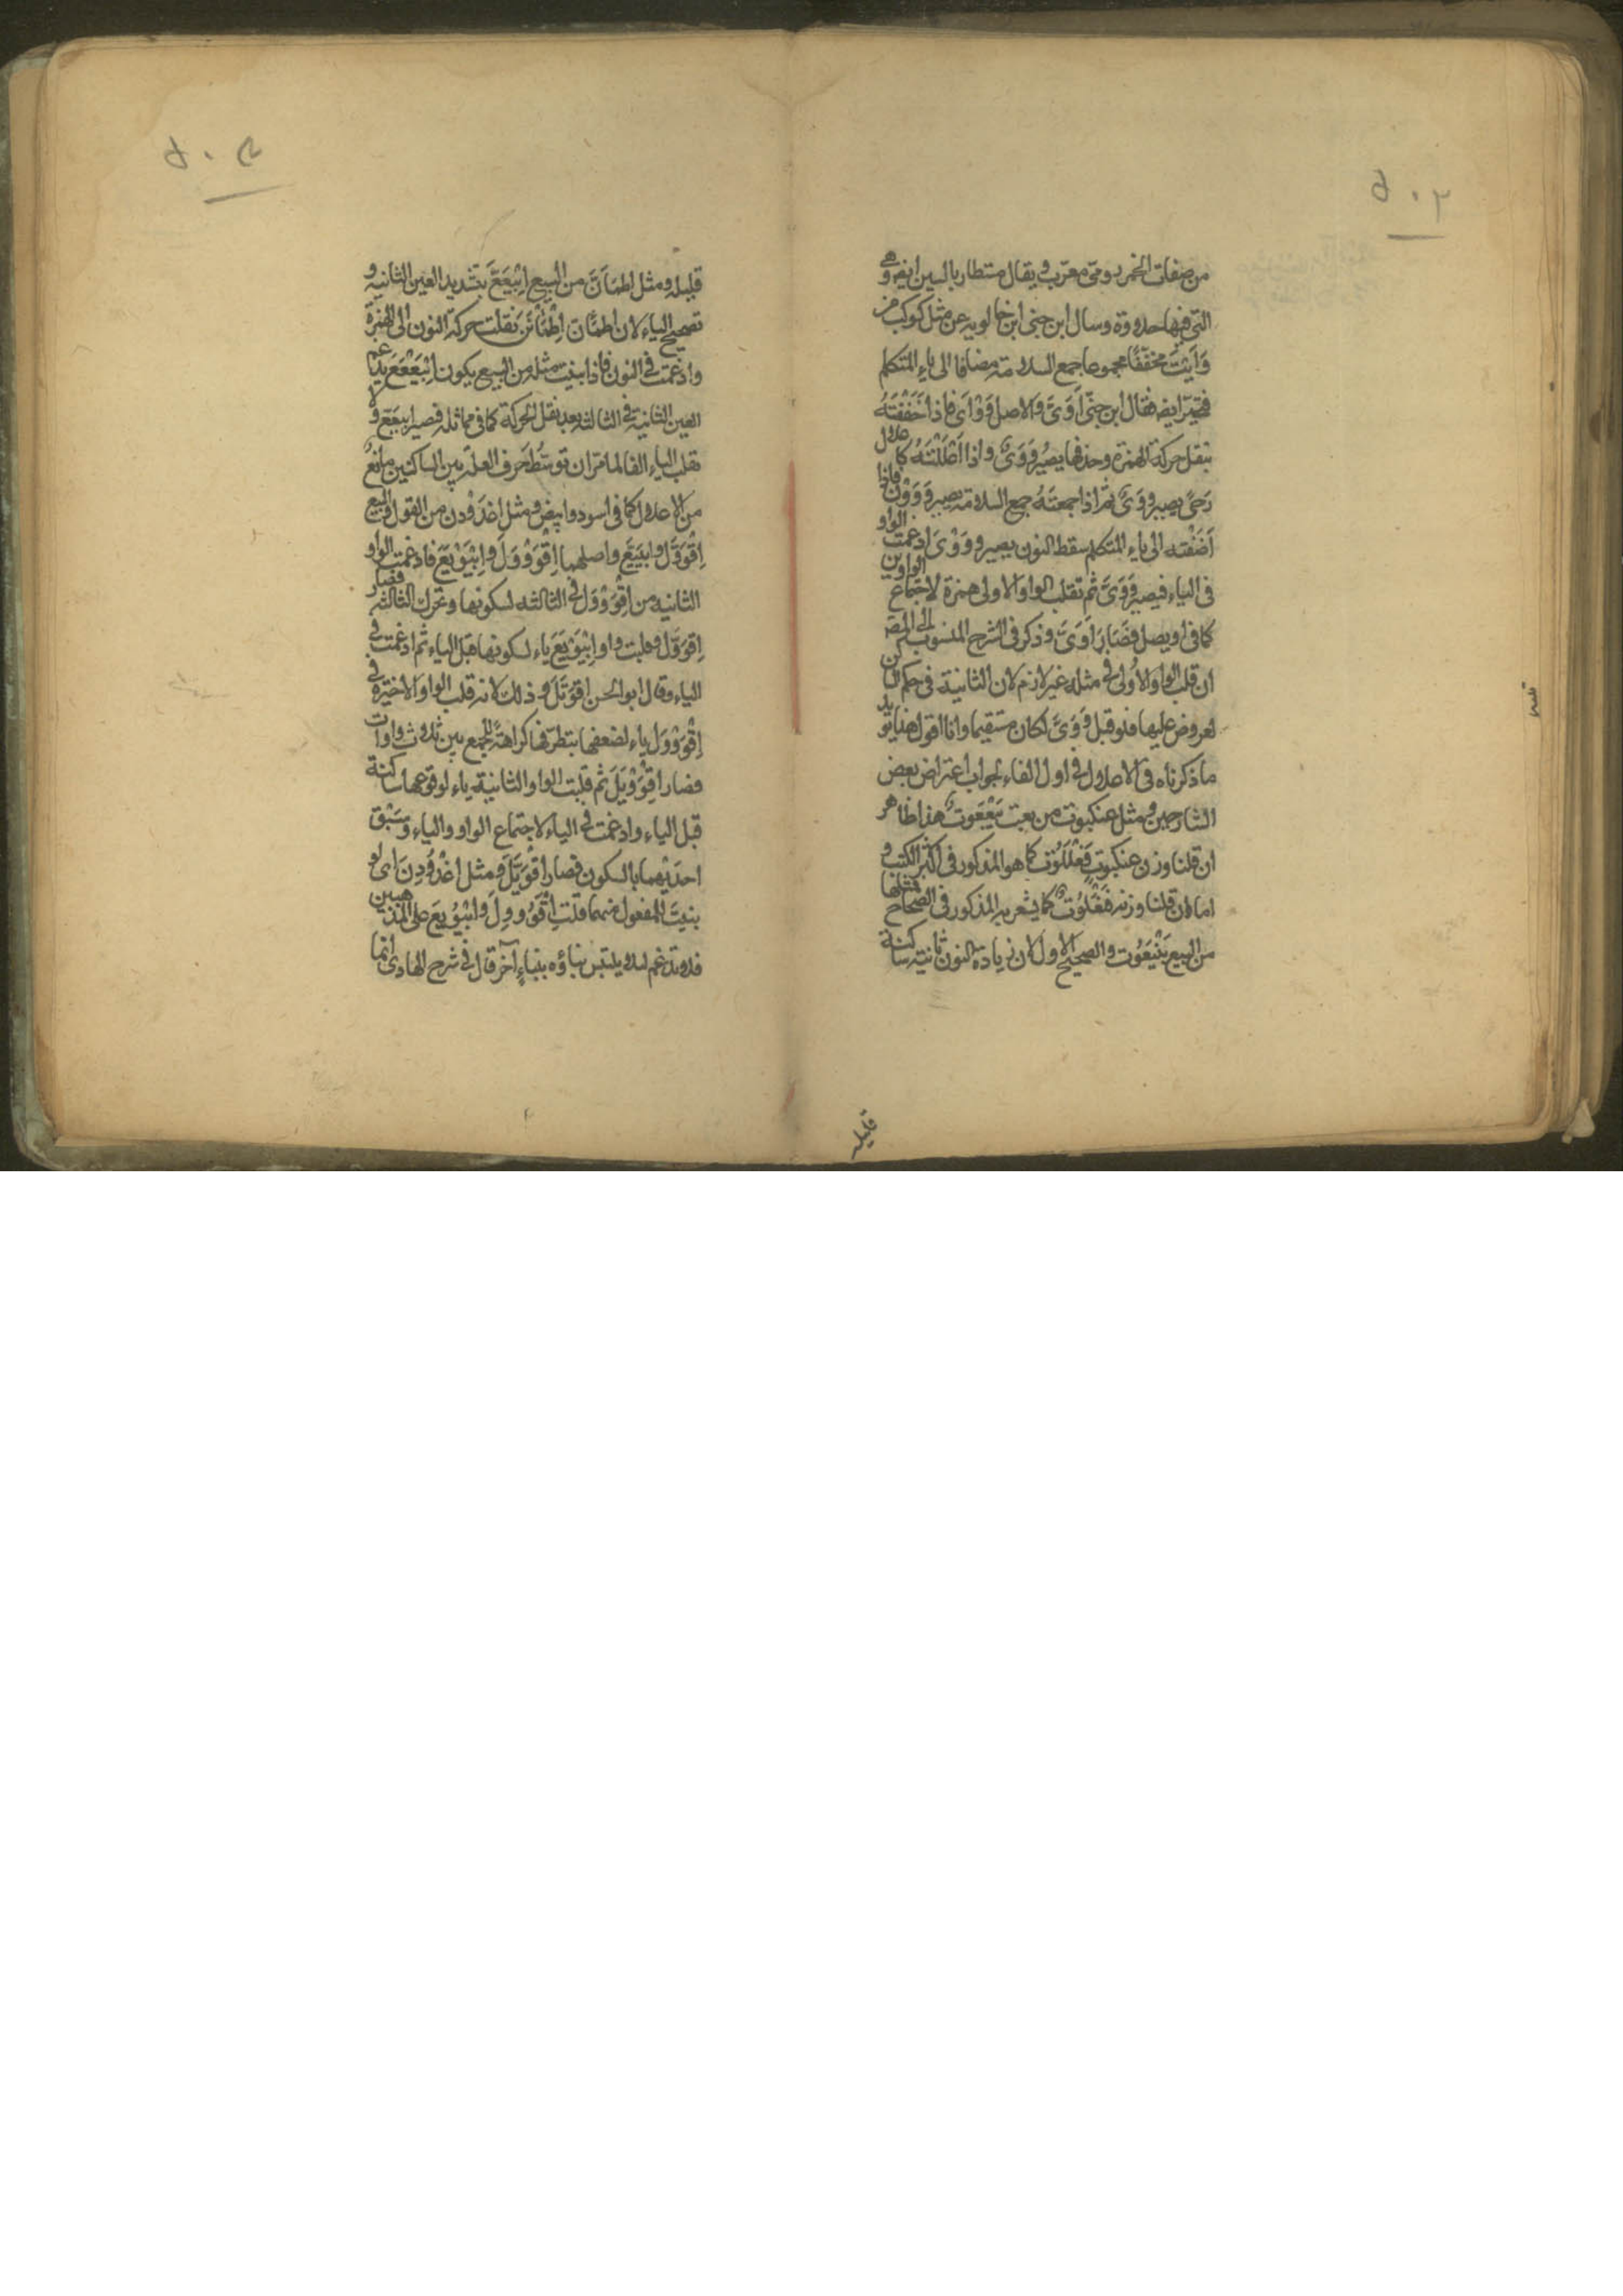 من صفات الخمر رومى معرّب و يقال مستطار بالسين ايضا وهى
التى فيها حلاوة وسال ابن جنى ابن خالويه عن مثل كوكب من
وَأَيْتُ مخفّفًا مجموعا جمع السلامة مضافا الى ياء المتكلم
فتحيّر ايضا فقال ابن جنّى أَوَىَّ والاصل وَوْأَى فاذا خَفَّفْتَهُ
بنقل حركة الهمزة وحذفها يصير وَوَىٌ واذا اَعْلَلْتَهُ كاعلال
رَحىً يصير وَوىً ثم اذا جمعتَهُ جمع السلامة يصير وَوَوْنَ فاذا
اَضَفْته الى ياء المتكلم سقط النون يصير وَوَوْىَ ادغمت الواو
فى الياء فيصير وَوَىَّ ثم تقلب الواو الاولى همزة لاجتماع الواوين
كما فى اويصل فصَارَ اَوَىَّ وذكر فى الشرح المنسوب الى المص
ان قلب الواو الاُولى فى مثله غير لازم لان الثانية فى حكم الساكن
لعروض عليها فلو قيل وَوَىَّ لكان مستقيما وانا اقول هذا يؤيد
ما ذكرناه فى الاعلال فى اول الفاء لجواب اعتراض بعض
الشارحين ومثل عنكبوت من بعت بَيْعَعُوتٌ هذا ظاهر
ان قلنا وزن عنكبوت فَعْلَلُوت كما هو المذكور فى اكثر الكتب و
اما ان قلنا وزنه فَنْعَلُوتٌ كما يشعر به المذكور فى الصحاح فمثلها
من البيع بَنْيَعُوت والصحيح الاول لان زيادة النون ثانية ساكنة
قليله
قليله ومثل اطمَأنَّ من البيع اِبْيَعَعَّ بتشديد العين الثانية و
تصحيح الياء لان اطمأنّ اِطْمَأْنَنَ نقلت حركة النون الى الهمزة
وادغمت فى النون فاذا بنيت مثله من البيع يكون اِبْيَعْعَعَ يدغم
العين الثانية فى الثالثة بعد نقل الحركة كما فى مماثله فصير ابيَعَعَّ ولا
تقلب الياء الفا لما مرّ ان توسُّط حرف العلة بين الساكنين مانعٌ
من الاعلال كما فى اسود وابيض ومثل اغدَوْدن من القول والبيع
اِقْوَوَّلَ وابيَيَّعَ واصلهما اِقْوَوْوَلَ وابْيَوْيَعَ فادغمت الواو
الثانية من اِقْوَوْوَلَ فى الثالثة لسكونها وتحرك الثالثة فصار
اِقوَوَّلَ وقلبت واو اِبْيَوْيَعَ ياء لسكونها قبل الياء ثم ادغمت فى
الياء وقال ابو الحسن اِقْوَيَّلَ وذلك لانه قلب الواو الاخيرة فى
اِقْوَوْوَلَ ياء لضعفها بتطرّفها كراهةً للجمع بين ثلاث واوات
فصار اِقْوَوْيَلَ ثم قلبت الواو الثانية ياء لوقوعها ساكنة
قبل الياء وادغمت فى الياء لاجتماع الواو والياء وسَبْق
احدَيْهما بالسكون فصار اقْوَيَّلَ ومثل اغْدُوْدِنَ اى لو
بنيتَ للمفعول منهما قلت اُقْوُووِلَ وابْيُويِعَ على المذهبين
فلا تدغم لئلا يلتبس بناؤه ببناءٍ آخر قال فى شرح الهادى انما